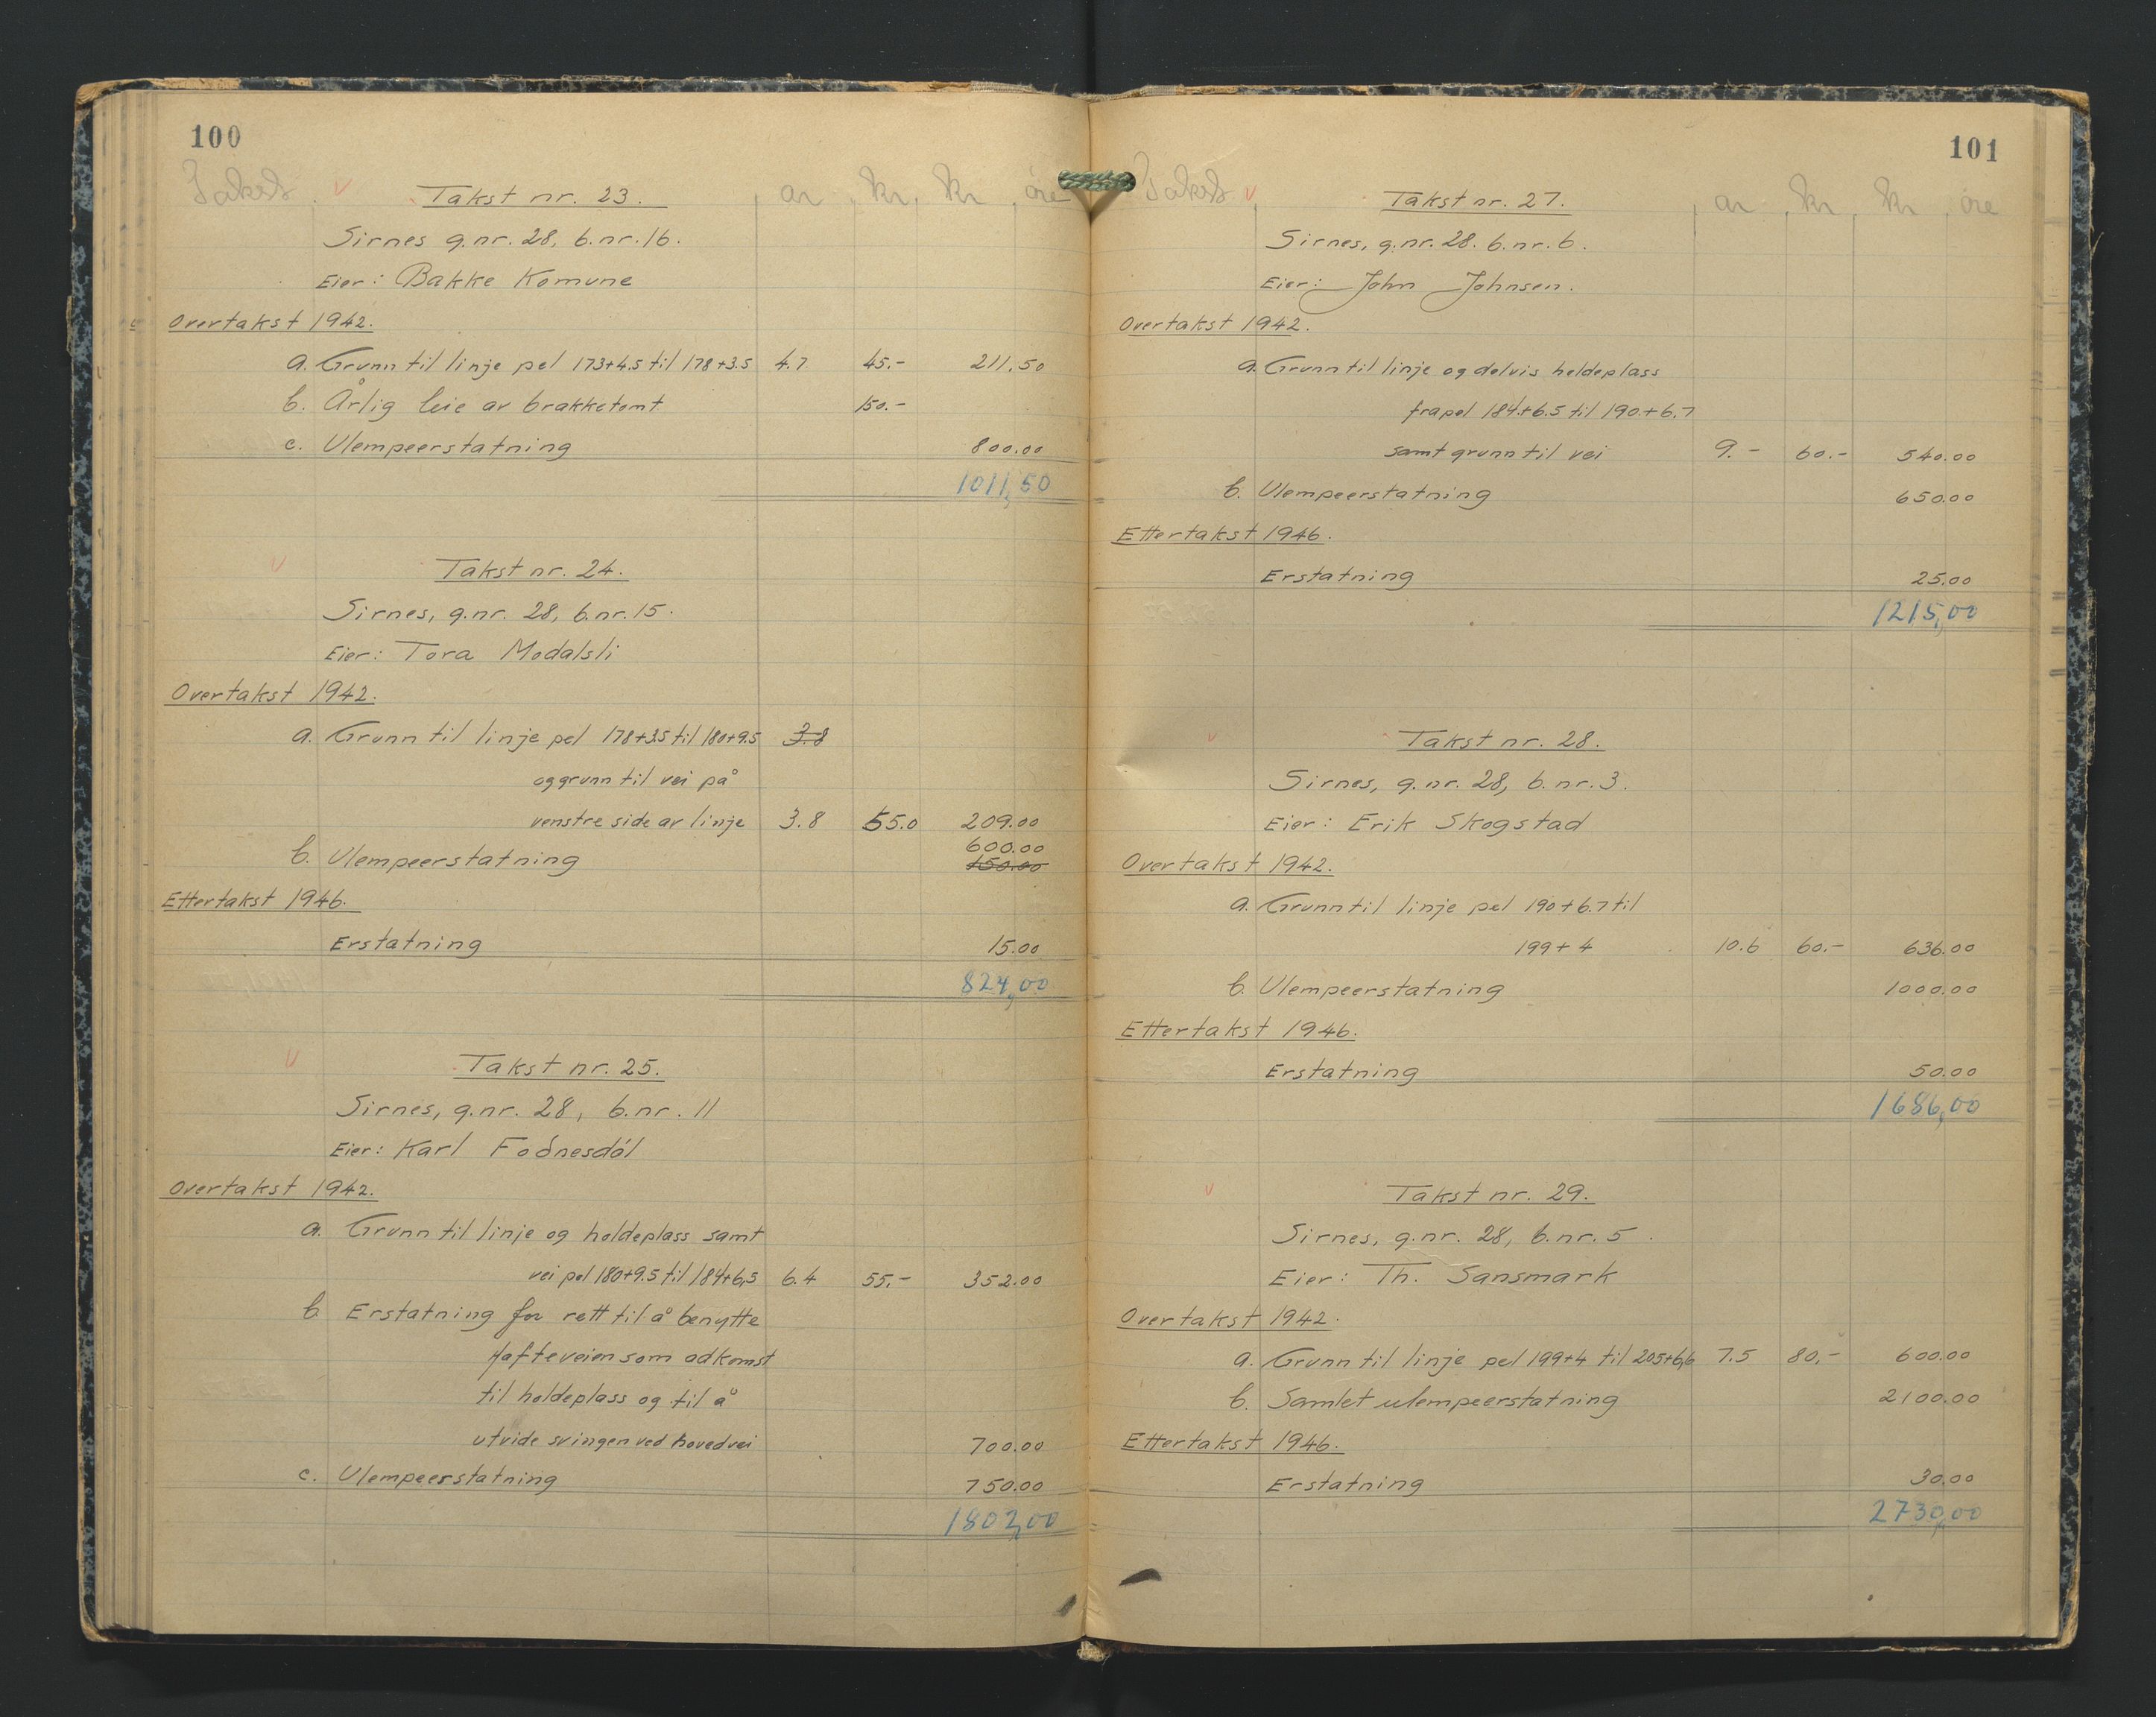 100
Takst v Takst nr. 23. ar kr. kr. øre
Sirnes g.nr. 28, b.nr. 16.
Eier: Bakke Komune
Overtakst 1942.
a. Grunn til linje pel 173+4.5 til 178+3.5 4.7 45.- 211.50
b. Årlig leie av brakketomt 150.-
c. Ulempeerstatning 800.00
1011,50
v Takst nr. 24.
Sirnes, g.nr. 28, b.nr. 15.
Eier: Tora Modalsli
Overtakst 1942.
a. Grunn til linje pel 178+3.5 til 180+9.5 3.8
og grunn til vei på
venstre side av linje 3.8 55.0 209.00
600.00
b. Ulempeerstatning 150.00
Ettertakst 1946.
Erstatning 15.00
824,00
v Takst nr. 25.
Sirnes, g.nr. 28, b.nr. 11
Eier: Karl Fodnesdøl
Overtakst 1942.
a. Grunn til linje og holdeplass samt
vei pel 180+9.5 til 184+6,5 6.4 55.- 352.00
b. Erstatning for rett til å benytte
som adkomst
til holdeplass og til å
utvide svingen ved hovedvei 700.00
c. Ulempeerstatning 750.00
1802,00
101
Takst v Takst nr. 27. ar kr kr øre
Sirnes, g.nr. 28. b.nr. 6.
Eier: John Johnsen.
Overtakst 1942.
a. Grunn til linje og delvis holdeplass
fra pel 184+6.5 til 190+6.7
samt grunn til vei 9.- 60.- 540.00
b. Ulempeerstatning 650.00
Ettertakst 1946.
Erstatning 25.00
1215,00
v Takst nr. 28.
Sirnes, g.nr. 28, b.nr. 3.
Eier: Erik Skogstad
Overtakst 1942.
a. Grunn til linje pel 190+6.7 til
199+4 10.6 60.- 636.00
b. Ulempeerstatning 1000.00
Ettertakst 1946.
Erstatning 50.00
1686,00
v Takst nr. 29.
Sirnes, g.nr. 28, b.nr. 5.
Eier: Th. Sansmark
Overtakst 1942.
a. Grunn til linje pel 199+4 til 205+6,6 7.5 80.- 600.00
b. Samlet ulempeerstatning 2100.00
Ettertakst 1946.
Erstatning 30.00
2730,00